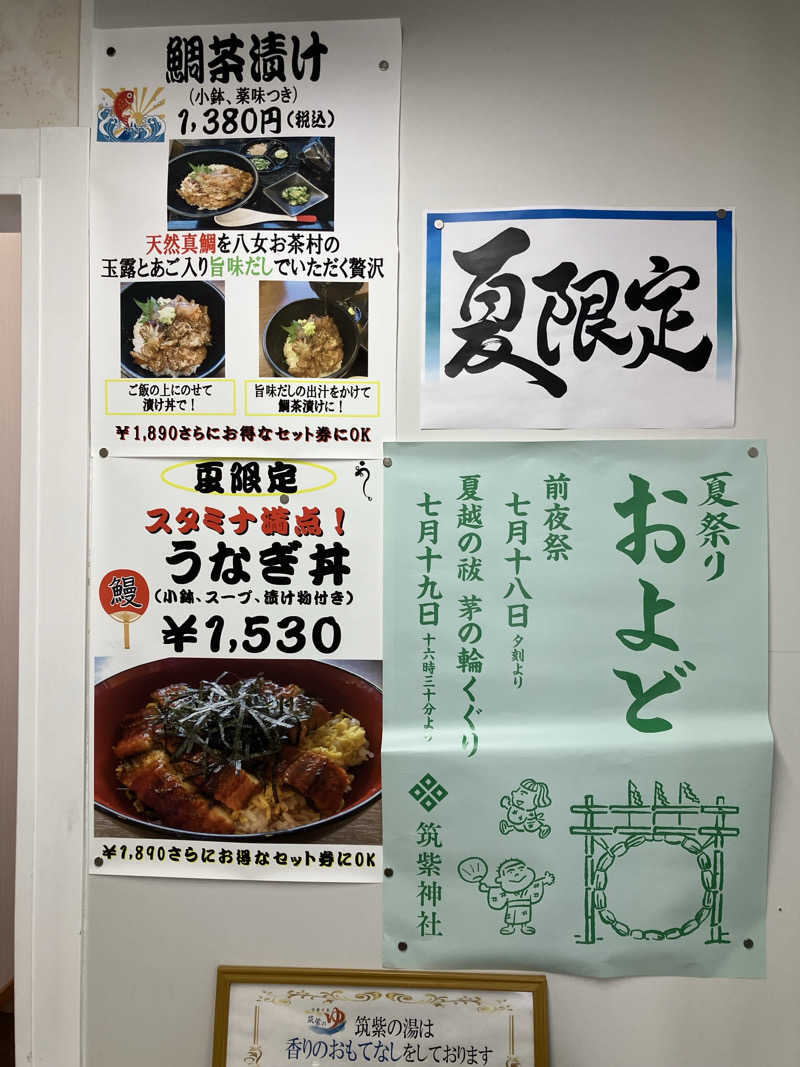 鯛茶漬け
(小鉢、薬味つき)
1,380円(税込)
天然真鯛を八女お茶村の
玉露とあご入り旨味だしでいただく贅沢
ご飯の上にのせて
漬け丼で！
旨味だしの出汁をかけて
鯛茶漬けに！
¥1,890さらにお得なセット券にOK
夏限定
スタミナ満点！
うなぎ丼
鰻
(小鉢、スープ、漬け物付き)
¥1,530
¥1,890さらにお得なセット券にOK
夏限定
夏祭り
およど
前夜祭
七月十八日 夕刻より
夏越の祓 茅の輪くぐり
七月十九日 十六時三十分より
筑紫神社
筑紫の
ゆ
筑紫の湯は
香りのおもてなしをしております